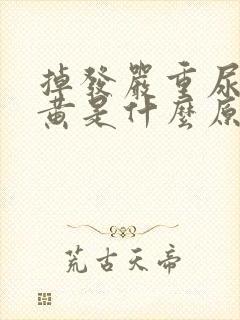 掉發嚴重尿
黃是什麼原
荒古天帝